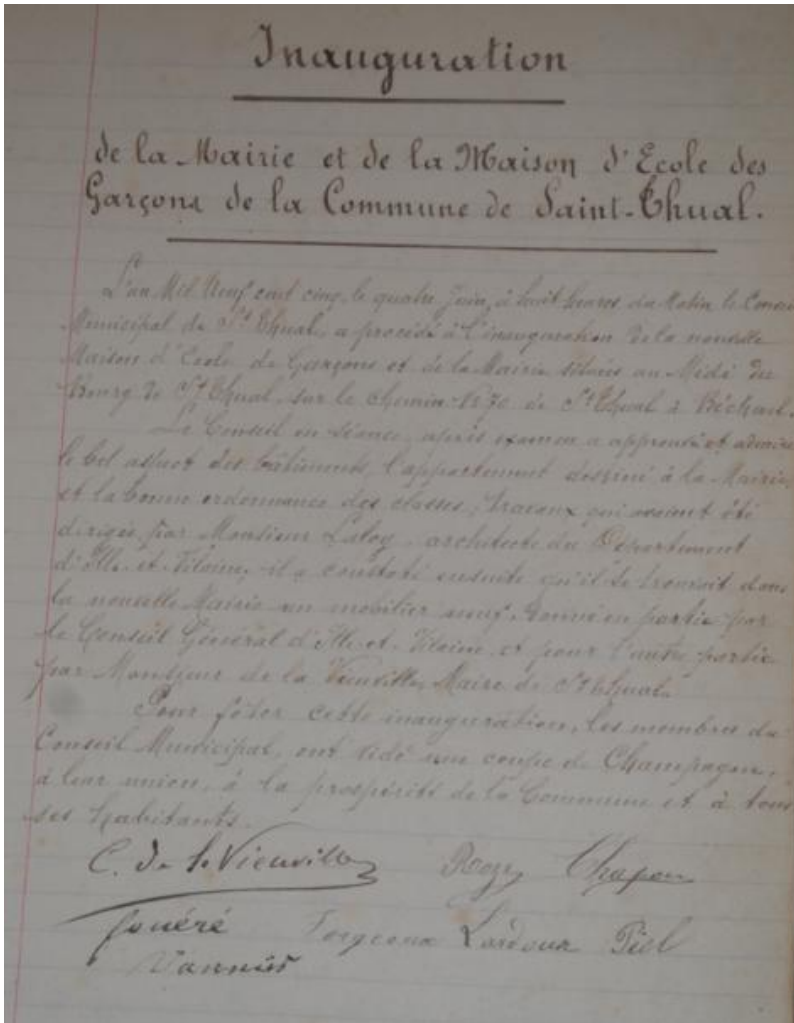 Inauguration
de la Mairie et de la Maison d'Ecole des
Garçons de la Commune de Saint-Thual.
L'an Mil Neuf cent cinq, le quatre Juin, à huit heures du Matin le Conseil
Municipal de St Thual, a procédé à l'inauguration de la nouvelle
Maison d'Ecole de Garçons et de la Mairie situées au Midi du
Bourg de St Thual sur le chemin No 70 de St Thual à
Le Conseil en séance, après examen a approuvé et admiré
le bel aspect des bâtiments, l'appartement destiné à la Mairie,
et la bonne ordonnance des classes, travaux qui avaient été
dirigés par Monsieur Laloy, architecte du Département
d'Ille-et-Vilaine, il a constaté ensuite qu'il se trouvait dans
la nouvelle Mairie un mobilier neuf, donné en partie par
le Conseil Général d'Ille-et-Vilaine et pour l'autre partie
par Monsieur de la Vieuville, Maire de St Thual.
Pour fêter cette inauguration, les membres du
Conseil Municipal, ont vidé une coupe de Champagne,
à leur union, à la prospérité de la Commune et à tous
ses habitants.
C. de la Vieuville Chapon
Gouéré Lardoux Piel
Vannier